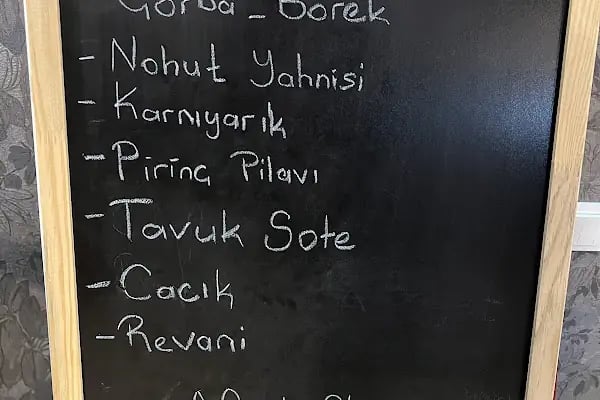 Çorba - Börek
- Nohut Yahnisi
- Karnıyarık
- Pirinç Pilavı
- Tavuk Sote
- Cacık
- Revani